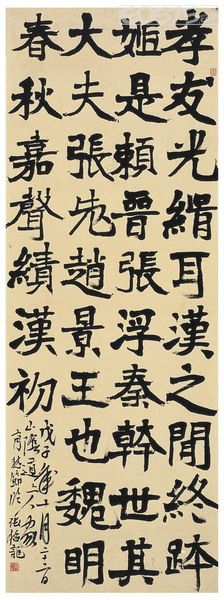 孝友光緝耳漢之間終跡
姬是賴晉張浮秦幹世其
大夫張老趙景王也魏明
春秋嘉聲績漢初
戊子年十月